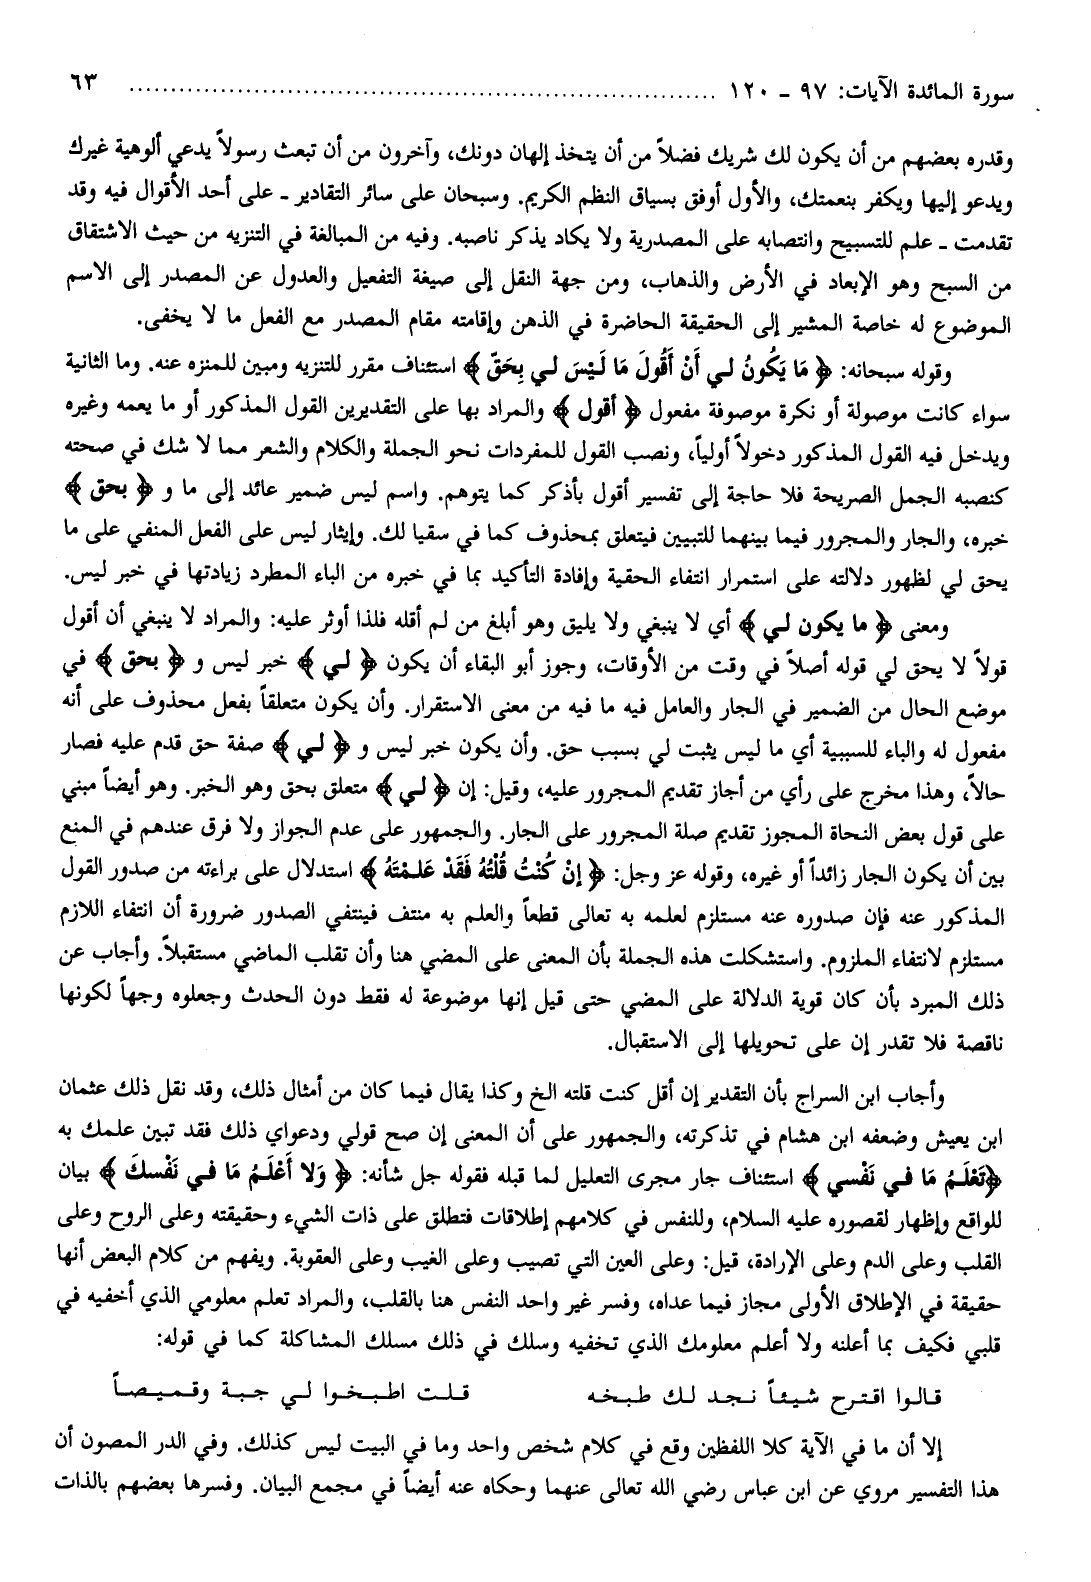 سورة المائدة الآيات: ٩٧ ـ ١٢٠ ........................................................................ ٦٣
وقدره بعضهم من أن يكون لك شريك فضلاً من أن يتخذ إلهان دونك، وآخرون من أن تبعث رسولاً يدعي ألوهية غيرك
ويدعو إليها ويكفر بنعمتك، والأول أوفق بسياق النظم الكريم. وسبحان على سائر التقادير ـ على أحد الأقوال فيه وقد
تقدمت ـ علم للتسبيح وانتصابه على المصدرية ولا يكاد يذكر ناصبه. وفيه من المبالغة في التنزيه من حيث الاشتقاق
من السبح وهو الإبعاد في الأرض والذهاب، ومن جهة النقل إلى صيغة التفعيل والعدول عن المصدر إلى الاسم
الموضوع له خاصة المشير إلى الحقيقة الحاضرة في الذهن وإقامته مقام المصدر مع الفعل ما لا يخفى.
وقوله سبحانه: ﴿ مَا يَكُونُ لي أَنْ أَقُولَ مَا لَيْسَ لي بِحَقّ ﴾ استئناف مقرر للتنزيه ومبين للمنزه عنه. وما الثانية
سواء كانت موصولة أو نكرة موصوفة مفعول ﴿ أقول ﴾ والمراد بها على التقديرين القول المذكور أو ما يعمه وغيره
ويدخل فيه القول المذكور دخولاً أولياً، ونصب القول للمفردات نحو الجملة والكلام والشعر مما لا شك في صحته
كنصبه الجمل الصريحة فلا حاجة إلى تفسير أقول بأذكر كما يتوهم. واسم ليس ضمير عائد إلى ما و ﴿ بحق ﴾
خبره، والجار والمجرور فيما بينهما للتبيين فيتعلق بمحذوف كما في سقيا لك. وإيثار ليس على الفعل المنفي على ما
يحق لي لظهور دلالته على استمرار انتفاء الحقية وإفادة التأكيد بما في خبره من الباء المطرد زيادتها في خبر ليس.
ومعنى ﴿ ما يكون لي ﴾ أي لا ينبغي ولا يليق وهو أبلغ من لم أقله فلذا أوثر عليه: والمراد لا ينبغي أن أقول
قولاً لا يحق لي قوله أصلاً في وقت من الأوقات، وجوز أبو البقاء أن يكون ﴿ لي ﴾ خبر ليس و ﴿ بحق ﴾ في
موضع الحال من الضمير في الجار والعامل فيه ما فيه من معنى الاستقرار. وأن يكون متعلقاً بفعل محذوف على أنه
مفعول له والباء للسببية أي ما ليس يثبت لي بسبب حق. وأن يكون خبر ليس و ﴿ لي ﴾ صفة حق قدم عليه فصار
حالاً، وهذا مخرج على رأي من أجاز تقديم المجرور عليه، وقيل: إن ﴿ لي ﴾ متعلق بحق وهو الخبر. وهو أيضاً مبني
على قول بعض النحاة المجوز تقديم صلة المجرور على الجار. والجمهور على عدم الجواز ولا فرق عندهم في المنع
بين أن يكون الجار زائداً أو غيره، وقوله عز وجل: ﴿ إنْ كُنْتُ قُلْتُهُ فَقَدْ عَلـمْتَهُ ﴾ استدلال على براءته من صدور القول
المذكور عنه فإن صدوره عنه مستلزم لعلمه به تعالى قطعاً والعلم به منتف فينتفي الصدور ضرورة أن انتفاء اللازم
مستلزم لانتفاء الملزوم. واستشكلت هذه الجملة بأن المعنى على المضي هنا وأن تقلب الماضي مستقبلاً. وأجاب عن
ذلك المبرد بأن كان قوية الدلالة على المضي حتى قيل إنها موضوعة له فقط دون الحدث وجعلوه وجهاً لكونها
ناقصة فلا تقدر إن على تحويلها إلى الاستقبال.
وأجاب ابن السراج بأن التقدير إن أقل كنت قلته الخ وكذا يقال فيما كان من أمثال ذلك، وقد نقل ذلك عثمان
ابن يعيش وضعفه ابن هشام في تذكرته، والجمهور على أن المعنى إن صح قولي ودعواي ذلك فقد تبين علمك به
﴿تَعْلَمُ مَا في نَفْسي ﴾ استئناف جار مجرى التعليل لما قبله فقوله جل شأنه: ﴿ وَلا أَعْلَمُ مَا في نَفْسكَ ﴾ بيان
للواقع وإظهار لقصوره عليه السلام، وللنفس في كلامهم إطلاقات فتطلق على ذات الشيء وحقيقته وعلى الروح وعلى
القلب وعلى الدم وعلى الإرادة، قيل: وعلى العين التي تصيب وعلى الغيب وعلى العقوبة. ويفهم من كلام البعض أنها
حقيقة في الإطلاق الأولى مجاز فيما عداه، وفسر غير واحد النفس هنا بالقلب، والمراد تعلم معلومي الذي أخفيه في
قلبي فكيف بما أعلنه ولا أعلم معلومك الذي تخفيه وسلك في ذلك مسلك المشاكلة كما في قوله:
قالوا اقترح شيئاً نجد لك طبخه    قلت اطبخوا لي جبة وقميصاً
إلا أن ما في الآية كلا اللفظين وقع في كلام شخص واحد وما في البيت ليس كذلك. وفي الدر المصون أن
هذا التفسير مروي عن ابن عباس رضي الله تعالى عنهما وحكاه عنه أيضاً في مجمع البيان. وفسرها بعضهم بالذات